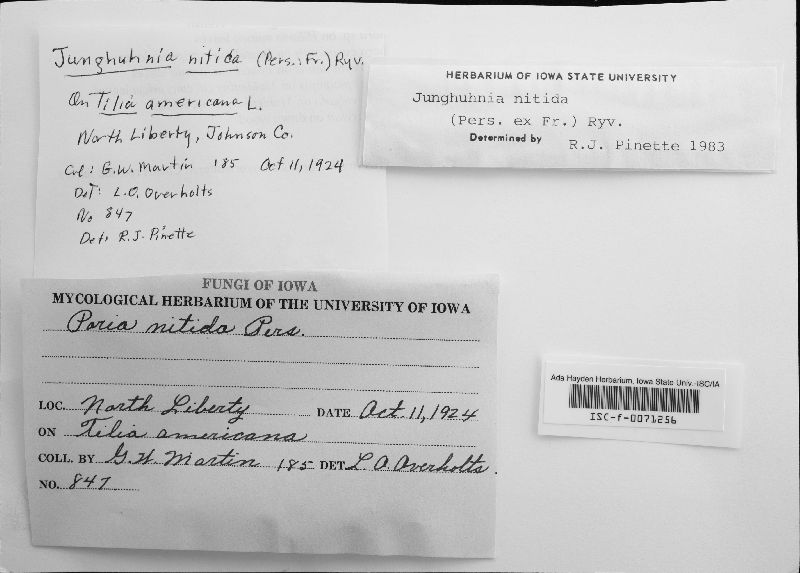 Junghuhnia nitida (Pers.: Fr.) Ryv.
On Tilia americana L.
North Liberty, Johnson Co.
Col: G.W. Martin 185 Oct 11, 1924
Det: L.O. Overholts
No 847
Det. R.J. Pinette
HERBARIUM OF IOWA STATE UNIVERSITY
Junghuhnia nitida
(Pers. ex Fr.) Ryv.
Determined by R.J. Pinette 1983
FUNGI OF IOWA
MYCOLOGICAL HERBARIUM OF THE UNIVERSITY OF IOWA
Poria nitida Pers.
LOC. North Liberty DATE Oct. 11, 1924
ON Tilia americana
COLL. BY G.W. Martin 185 DET. L O Overholts.
NO. 847
Ada Hayden Herbarium, Iowa State Univ.-ISC/IA
ISC-f-0071256